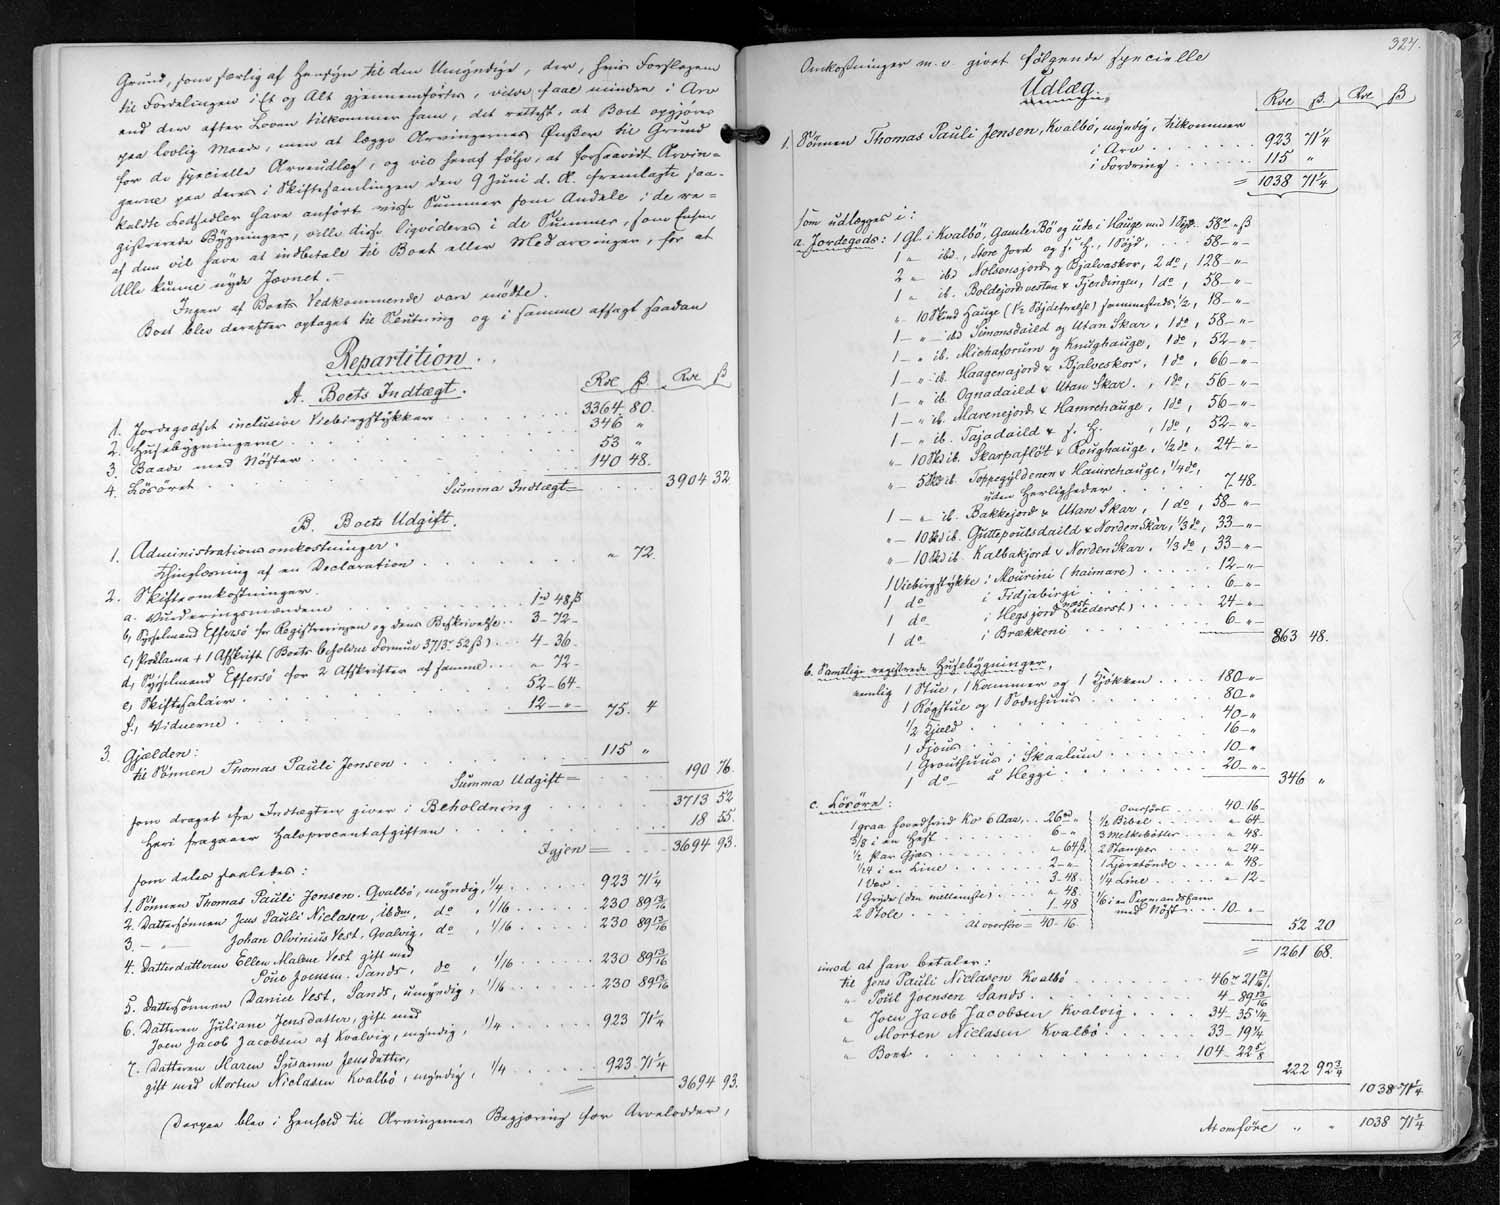 Grund, som særlig af Hensyn til den Umyndige, der, hvis Forslagene
til Fordelingen i Et og Alt gjennemførtes, vilde faae mindre i Arv
end der efter Loven tilkommer ham, det rettest, at Boet opgjøres
paa lovlig Maade, men at lægge Arvingernes Ønsker til Grund
for de specielle Arveudlæg, og vil heraf følge, at forsaavidt Arvin-
gerne paa deres i Skiftesamlingen den 9 Juni d. A. fremlagte saa-
kaldte Lodsedler have anført visse Summer som Andele i de re-
gistrerede Bygninger, ville disse ligvideres i de Summer, som Enhver
af dem vil have at indbetale til Boet eller Medarvinger, for at
Alle kunne nyde Jævnet.-
Ingen af Boets Vedkommende vare mødte.
Boet blev derefter optaget til Slutning og i samme afsagt saadan
Repartition.
A. Boets Indtægt.
Rdl ß. Rdl ß
1. Jordegodset inclusive Viebirgstykker . . . 3364 80.
2. Husebygningerne . . . 346 "
3. Baade med Nøster . . . 53 "
4. Løsøret . . . 140 48.
Summa Indtægt = . . . 3904 32
B. Boets Udgift.
1. Administrationsomkostninger.
Thinglæsning af en Declaration . . . " 72.
2. Skifteomkostninger.
a. Vurderingsmændene . . . 1rd 48ß
b, Sysselmand Effersø for Registreringen og dens Beskrivelse . . 3-72-
c, Proklama + 1 Afskrift (Boets beholdne Formue 3713r 52ß) . . . 4-36-
d, Sysselmand Effersø for 2 Afskrifter af samme . . . "-72-
e, Skiftesalair . . . 52-64-
f., Vidnerne . . . 12-"- 75. 4
3. Gjælden:
til Sønnen Thomas Pauli Jensen . . . 115 "
Summa Udgift = . . . 190 76.
som draget fra Indtægten giver i Beholdning . . . 3713 52
Heri fragaaer Halvprocentafgiften . . . 18 55.
Igjen = . . . 3694 93.
som deles saaledes:
1. Sønnen Thomas Pauli Jensen. Qvalbø, myndig, 1/4 . . . 923 71 1/4
2. Dattersønnen Jens Pauli Niclasen, ibdm, do , 1/16 . . . 230 89 13/16
3. -"- Johan Olvinius Vest, Qvalvig, do , 1/16 . . . 230 89 13/16
4. Datterdatteren Ellen Malene Vest gift med
Poul Joensen. Sands, do , 1/16 . . . 230 89 13/16
5. Dattersønnen Daniel Vest, Sands, umyndig, 1/16 . . . 230 89 13/16
6. Datteren Juliane Jensdatter, gift med
Joen Jacob Jacobsen af Kvalvig, myndig, 1/4 . . . 923 71 1/4
7. Datteren Maren Susanne Jensdatter,
gift med Morten Niclasen Kvalbø, myndig, 1/4 . . . 923 71 1/4
3694 93.
Derpaa blev i Henhold til Arvingernes Begjæring for Arvelodder,
324.
Omkostninger m.v. givet følgende specielle
Udlæg.
Rdl ß. Rdl ß
1. Sønnen Thomas Pauli Jensen, Kvalbø, myndig, tilkommer
i Arv . . . 923 71 1/4
i Fordring . . . 115 "
= 1038 71 1/4
som udlægges i:
a. Jordegods: 1 Gl. i Kvalbø, Gamle Bø og udo i Hauge med 1 Søjd. 58r "ß
1 " ibd., Store Jord og f. H., 1 Søjd, . . . 58-"-
2 " ibd Nolsensjord og Bjalvaskor, 2 do, 128-"-
1 " ib. Boldejord vesten v Fjerdingen, 1 do, 58-"-
" 10 Skind Hauge (1½ Søjdefredse) sammesteds ½, 18-"-
1-"- ibd Simonsdaild og Utan Skar, 1 do, 58-"-
1-" ib. Michasorum og Knughauge, 1 do, 52-"-
1-" ib. Haagenajord v Bjalveskor, 1 do, 66-"-
1-" ib. Ognadaild v Utan Skar., 1 do, 56-"-
1-" ib. Marenejord v Hamrehauge, 1 do, 56-"-
1-" ib. Tajadaild v f. H. , 1 do, 52-"-
"-10 Skd ib. Skarpafløt v Roughauge, ½ do, 24-"-
"-5 Skd ib. Toppegyldenen v Hamrehauge, ¼ do,
uden Herligheder . . . 7.48.
1-" ib. Bakkejord v Utan Skar, 1 do, 58-"-
"-10 Skd ib. Guttepoulsdaild v Norden Skar, 1/3 do, 33-"-
"-10 Skd ib. Kalbakjord v Norden Skar. 1/3 do, 33-"-
1 Viebirgstykke i Mourini (haimare) . . . 12-"-
1 do i Tidjabirgi . . . 6-"-
1 do i Hegsjord (næst underst) . . . 24-"-
1 do i Brækkeni . . . 6-"- 863 48.
b. Samtlige registrede Husebygninger,
nemlig 1 Stue, 1 Kammer og 1 Kjøkken . . . 180-"
1 Røgstue og 1 Sodnhuus . . . 80-"
½ Kjæld . . . 40-"
1 Fjous . . . 16-"
1 Grouthuus i Skaalum . . . 10-"
1 do á Heggi . . . 20-"- 346 "
c. Løsøre:
1 graa hovedhvid Ko 6 Aar, . . 26rd "
3/8 i en Hest . . . 6-"
½ Par Gjæs . . . " 64ß.
1/24 i en Line . . . 2-"
1 Væv . . . 3-48.
1 Gryde (den mellemste) . . . " 48.
2 Stole . . . 1-48
At overføre = 40-16.
Overført . . . 40-16-
½ Bibel . . . " 64-
3 Melkebøtter . . . " 48-
2 Stamper . . . " 24-
1 Tjæretønde . . . " 48
¼ Line . . . " 12-
1/6 i en Sexmandsfare
med Nøst . . . 10-"- 52 20
= 1261 68.
imod at han betaler:
til Jens Pauli Niclasen Kvalbø . . . 46r 21 13/16
" Poul Joensen Sands . . . 4-89 13/16
" Joen Jacob Jacobsen Kvalvig . . . 34-35 1/4
" Morten Niclasen Kvalbø . . . 33-19 1/4
" Boet . . . 104-22 5/8
222 92 3/4
1038 71 1/4
At omføre " " 1038 71 1/4